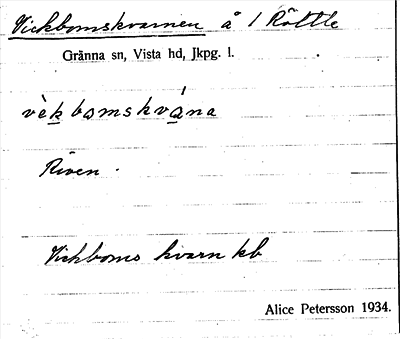 Vickbomskvarnen å 1 Röttle
Gränna sn, Vista hd, Jkpg. l.
vèkbomskvána
Riven.
Vickboms kvarn kb
Alice Petersson 1934.